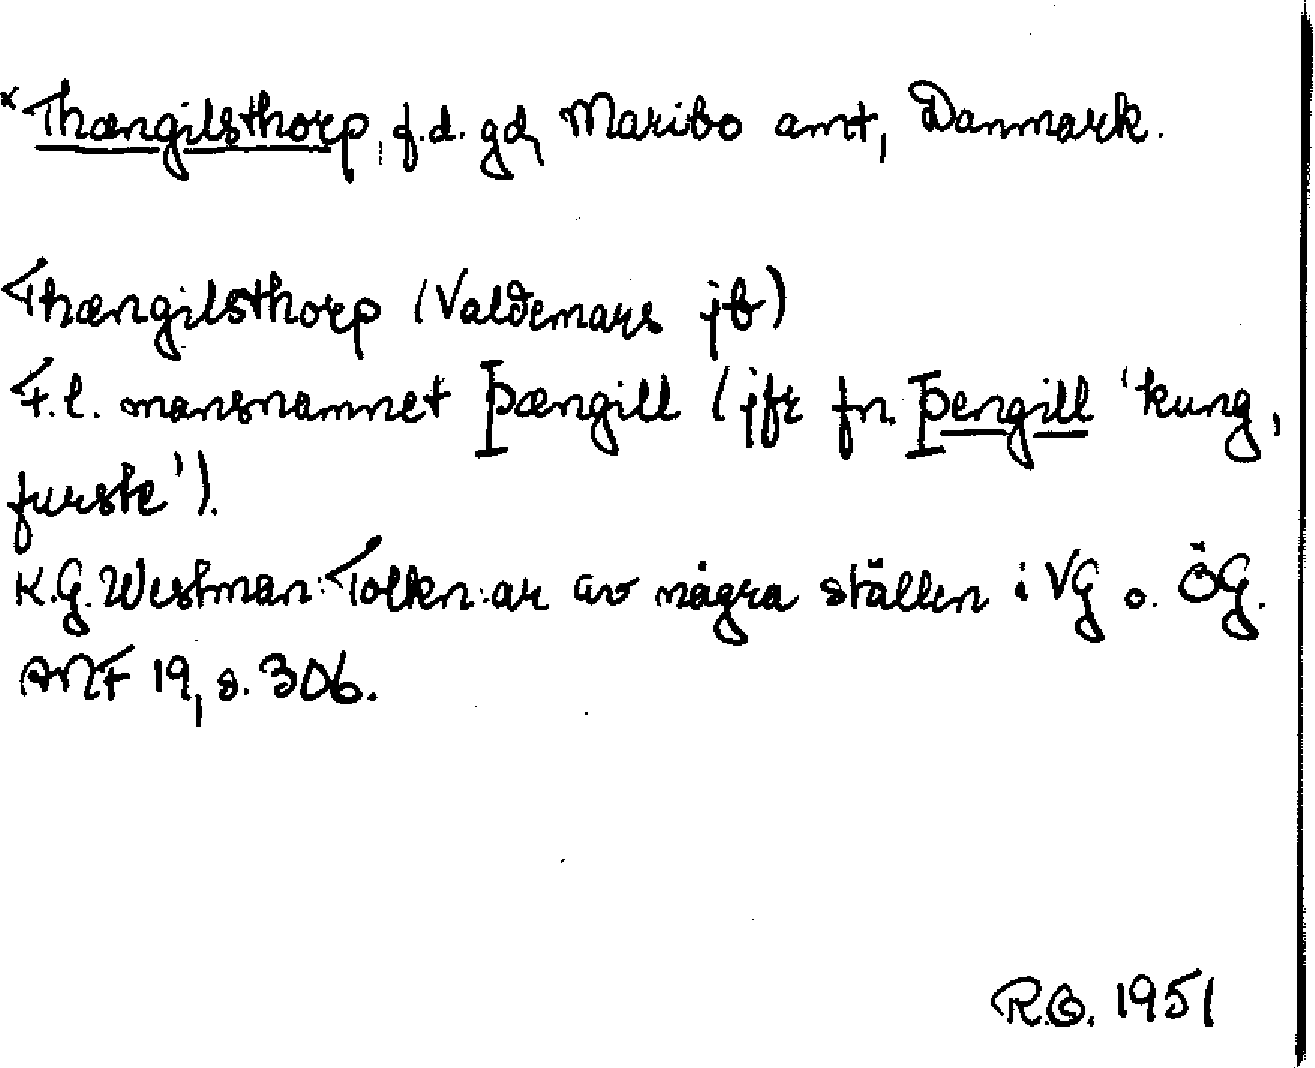 *Thængilsthorp, f.d. gd, Maribo amt, Danmark.
Thængilsthorp (Valdemars jb)
T.l. mansnamnet Þængill (jfr fn. Þengill 'kung,
furste').
K.G. Westman: Tolkn:ar av några ställen i VG o. ÖG.
ANF 19, s. 306.
R.O. 1951